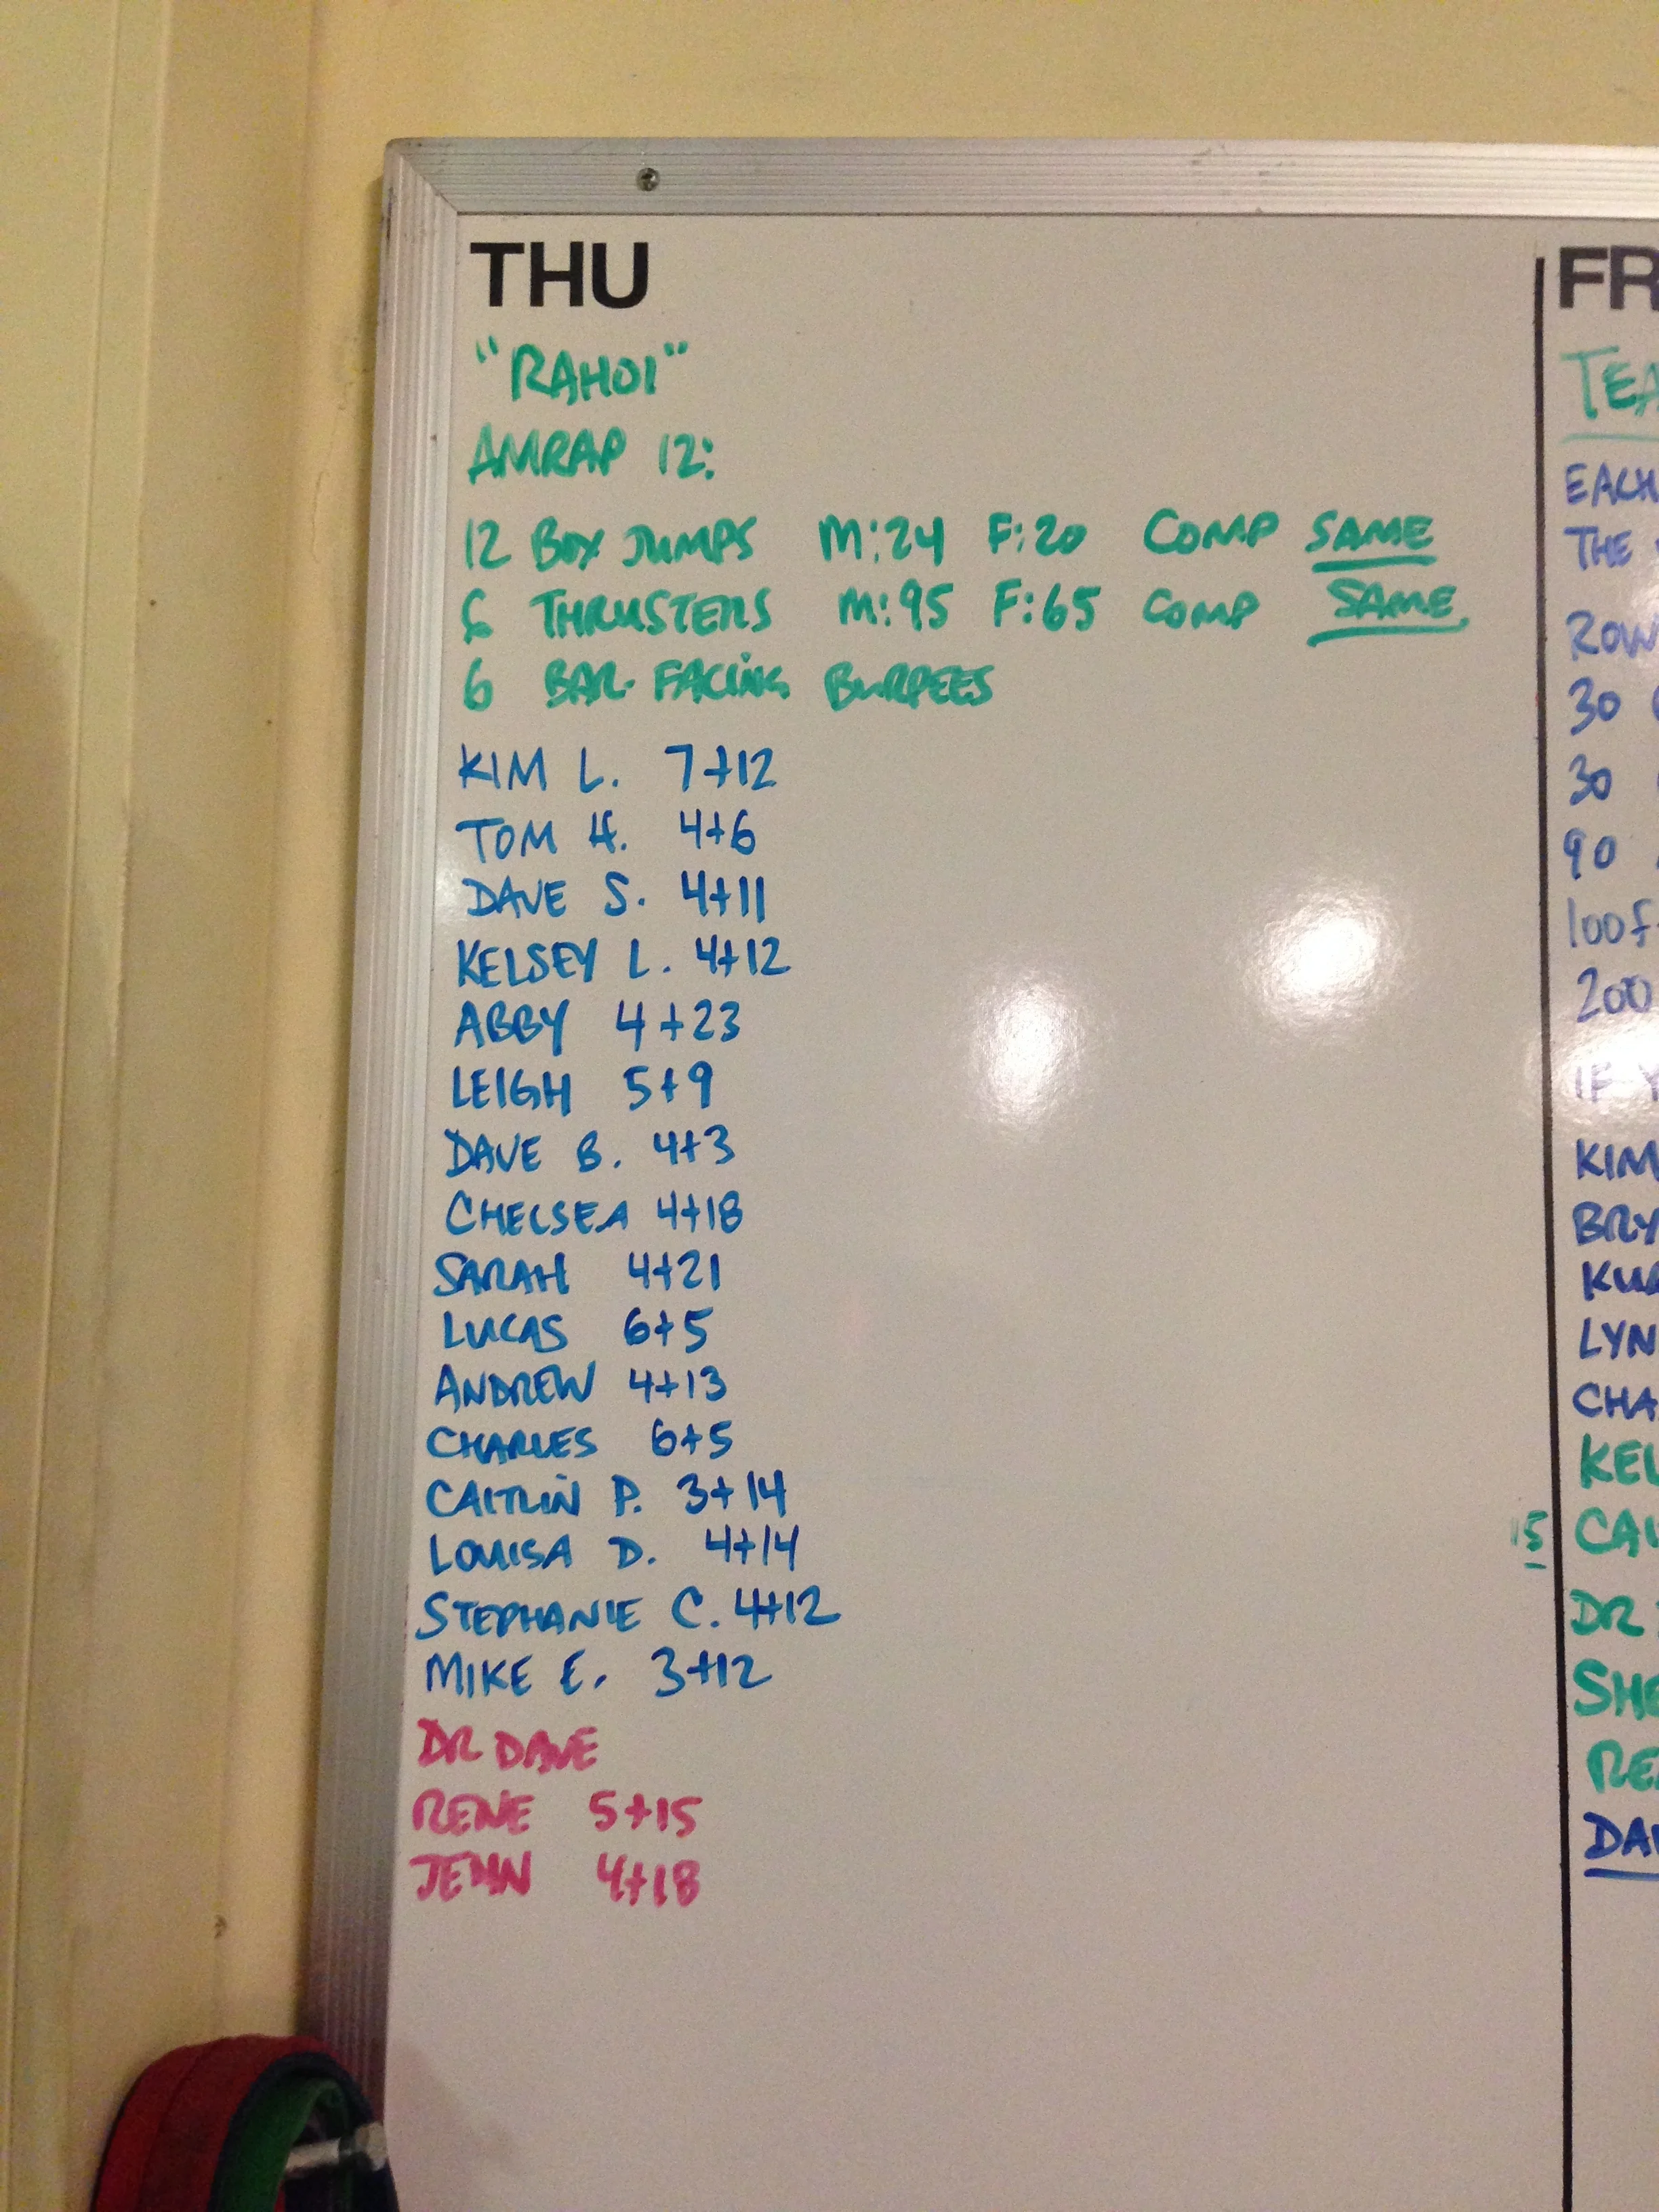 THU
"RAHOI"
AMRAP 12:
12 BOX JUMPS M:24 F:20 COMP SAME
6 THRUSTERS M:95 F:65 COMP SAME
6 BAR-FACING BURPEES
KIM L. 7+12
TOM H. 4+6
DAVE S. 4+11
KELSEY L. 4+12
ABBY 4+23
LEIGH 5+9
DAVE B. 4+3
CHELSEA 4+18
SARAH 4+21
LUCAS 6+5
ANDREW 4+13
CHARLES 6+5
CAITLIN P. 3+14
LOUISA D. 4+14
STEPHANIE C. 4+12
MIKE E. 3+12
DR DAVE
RENE 5+15
JENN 4+18
FR
TEA
EACH
THE
ROW
30
30
90
100f
200
IF Y
KIM
BRY
LYN
CHA
KEL
15
DR
SHE
DA